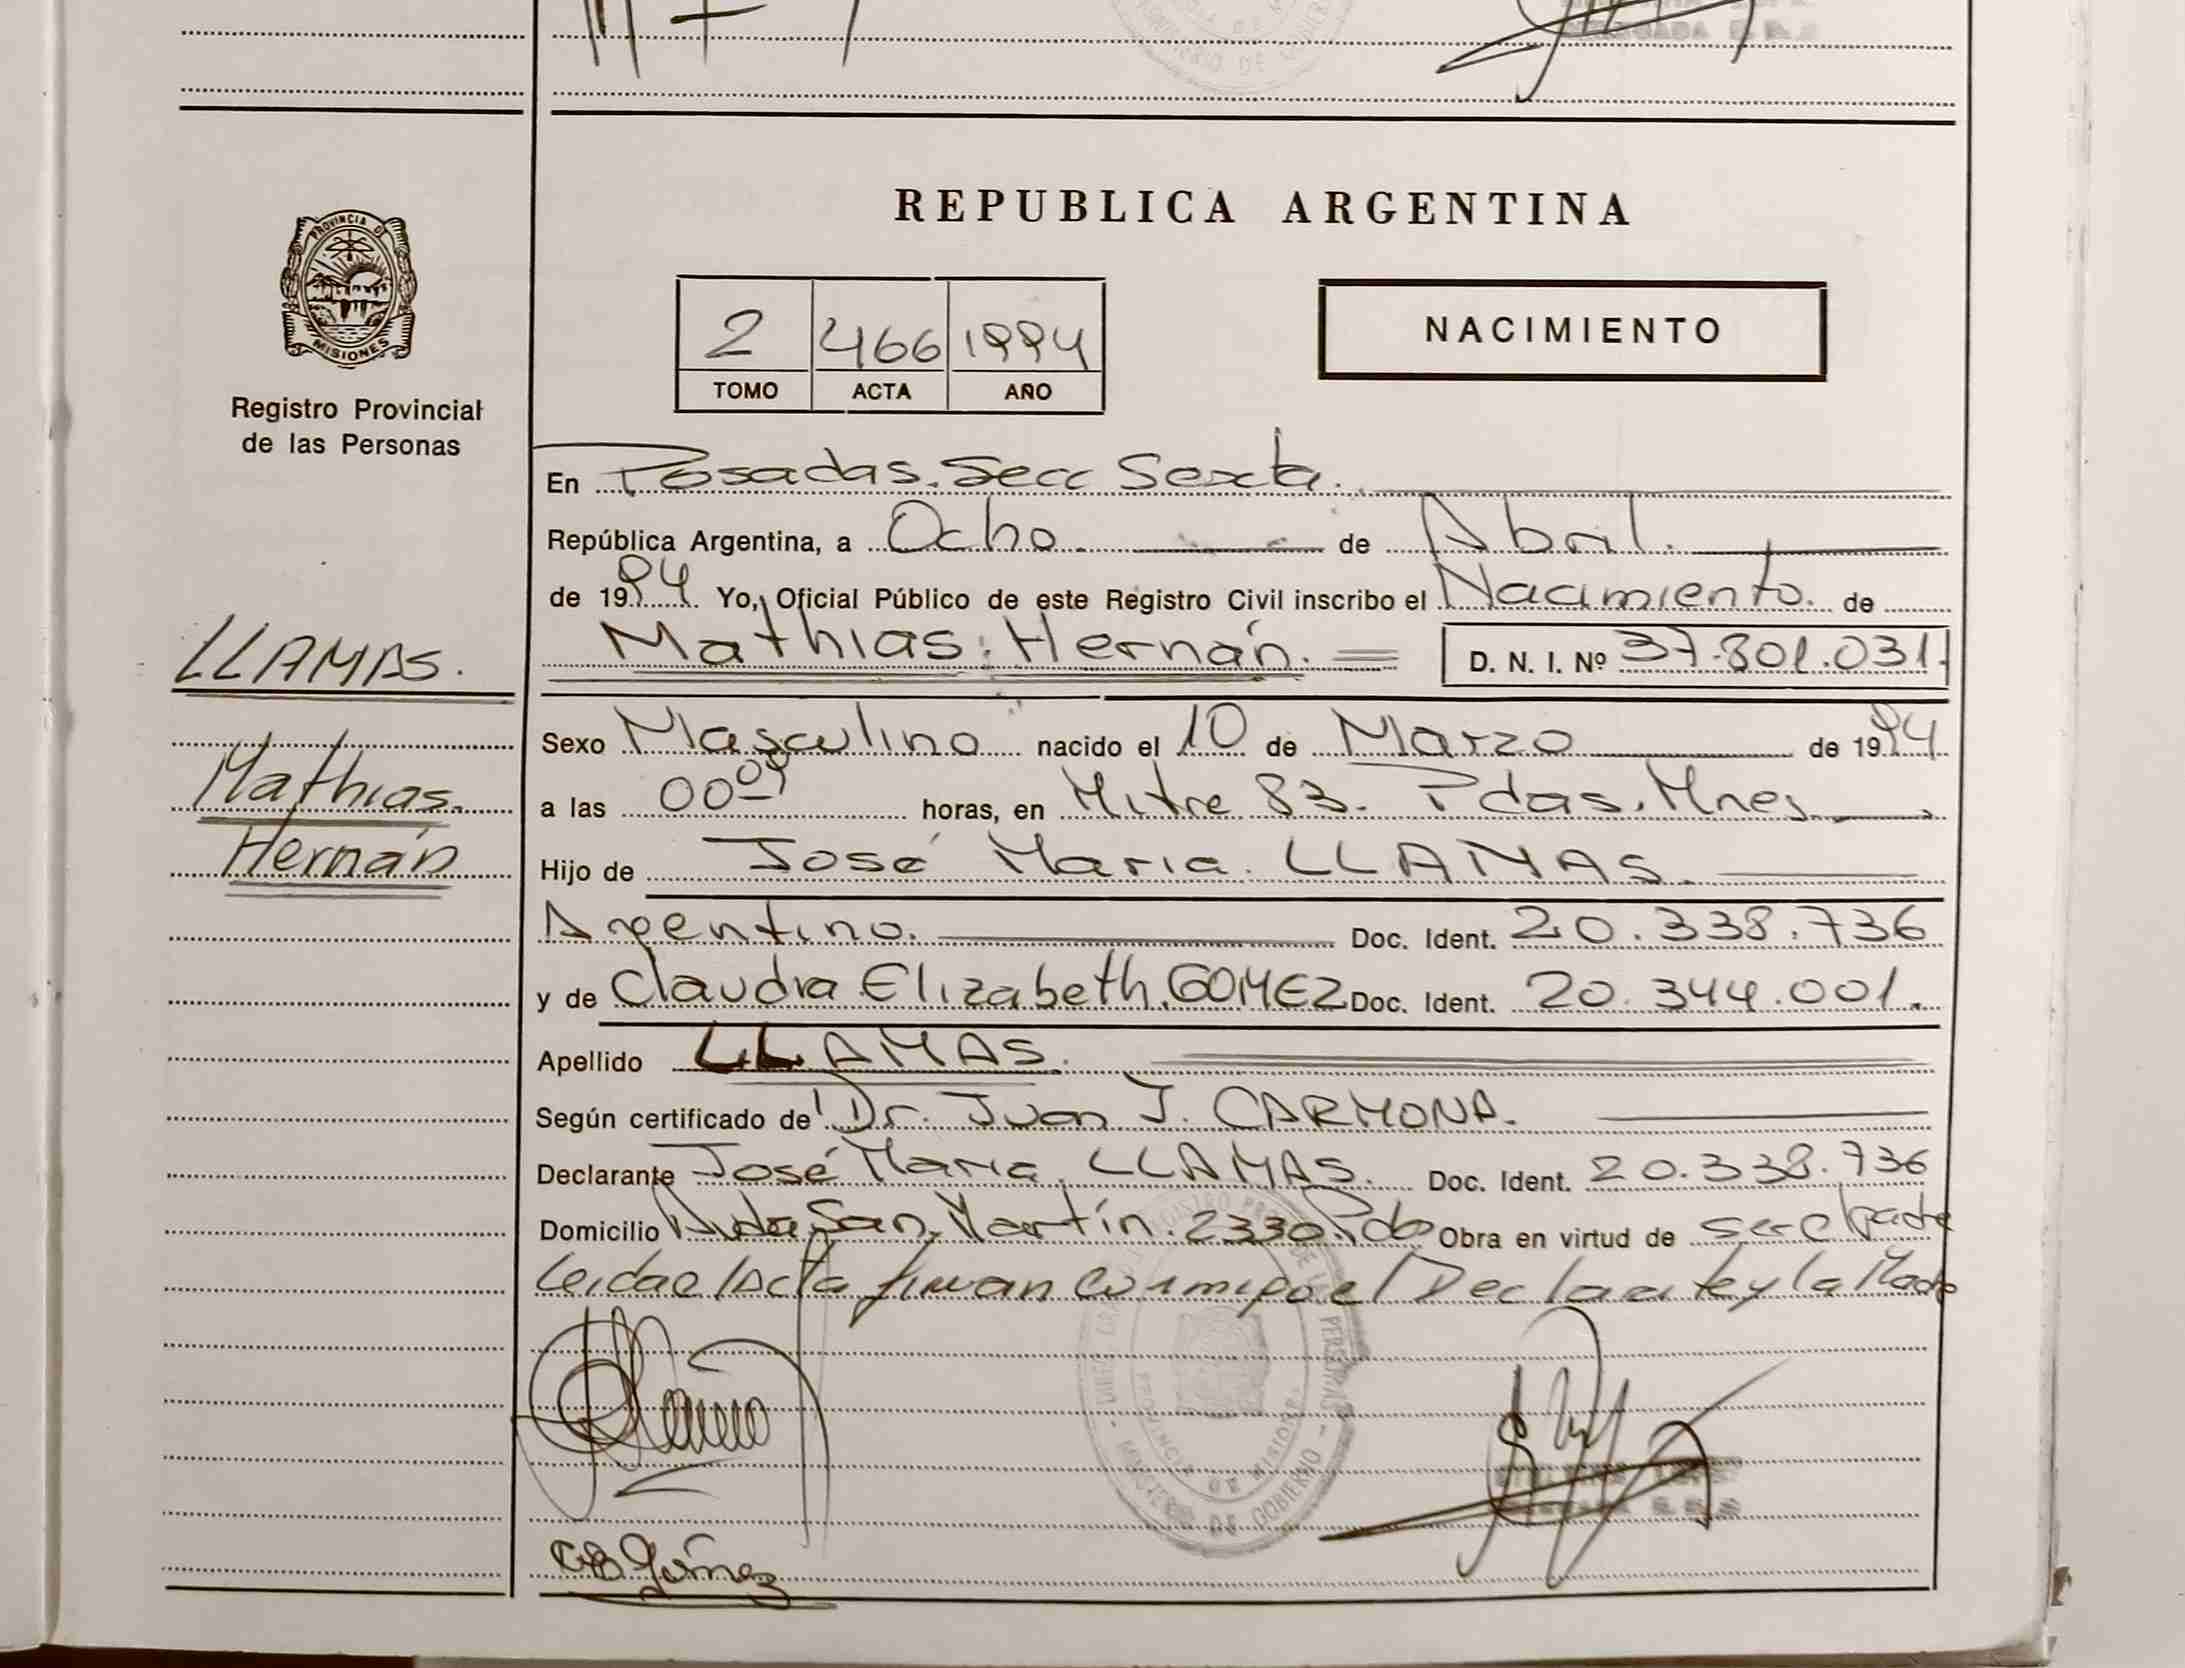 REPUBLICA ARGENTINA
PROVINCIA DE
MISIONES
Registro Provincial
de las Personas
2 466 1994
TOMO ACTA AÑO
NACIMIENTO
En Posadas. Secc Sexta.
República Argentina, a Ocho de Abril.
de 1994 Yo, Oficial Público de este Registro Civil inscribo el Nacimiento. de
LLAMAS.
Mathias Hernán. D. N. I. Nº 37.801.031.
Sexo Masculino nacido el 10 de Marzo de 1994
Mathias.
a las horas, en Mitre 83. Pdas. Mnes
Hernán
Hijo de José Maria LLAMAS.
Argentino. Doc. Ident. 20.338.736
y de Claudia Elizabeth. GOMEZ Doc. Ident. 20.344.001.
Apellido LLAMAS.
Según certificado de Dr. Juan J. CARMONA.
Declarante José Maria LLAMAS. Doc. Ident. 20.338.736
Domicilio Avda San Martín. 2330 Pdas Obra en virtud de ser el padre
Leida el Acta firman conmigo el Declarante y la Madre
PROVINCIA DE MISIONES
MINISTERIO DE GOBIERNO
CB Gómez